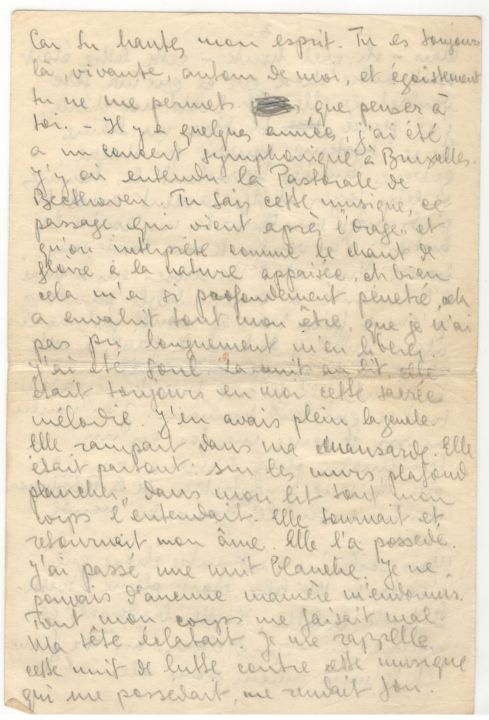 Car tu hantes mon esprit. Tu es toujours
là, vivante, autour de moi, et égoïstement
tu ne me permets que penser à
toi. – Il y a quelques années, j'ai été
a un concert symphonique à Bruxelles.
J'y ai entendu la Pastorale de
Beethoven. Tu sais cette musique, ce
passage qui vient après l'orage et
qu'on interprète comme le chant de
gloire à la nature appaisée, eh bien
cela m'a si profondement pénétré,
a envahit tout mon être, que je n'ai
pas pu longuement m'en liberer.
J'ai été la nuit au lit elle
était toujours en moi cette sacrée
mélodie. J'en avais plein la gueule
Elle rampait dans ma mansarde. Elle
était partout: sur les murs, plafond
plancher, dans mon lit tout mon
corps l'entendait. Elle tournait et
retournait mon âme. Elle l'a possédé.
J'ai passé une nuit blanche. Je ne
pouvais d'aucune manière m'endormir.
Tout mon corps me faisait mal.
Ma tête éclatait. Je me rappelle
cette nuit de lutte contre cette musique
qui me possédait, me rendait fou.